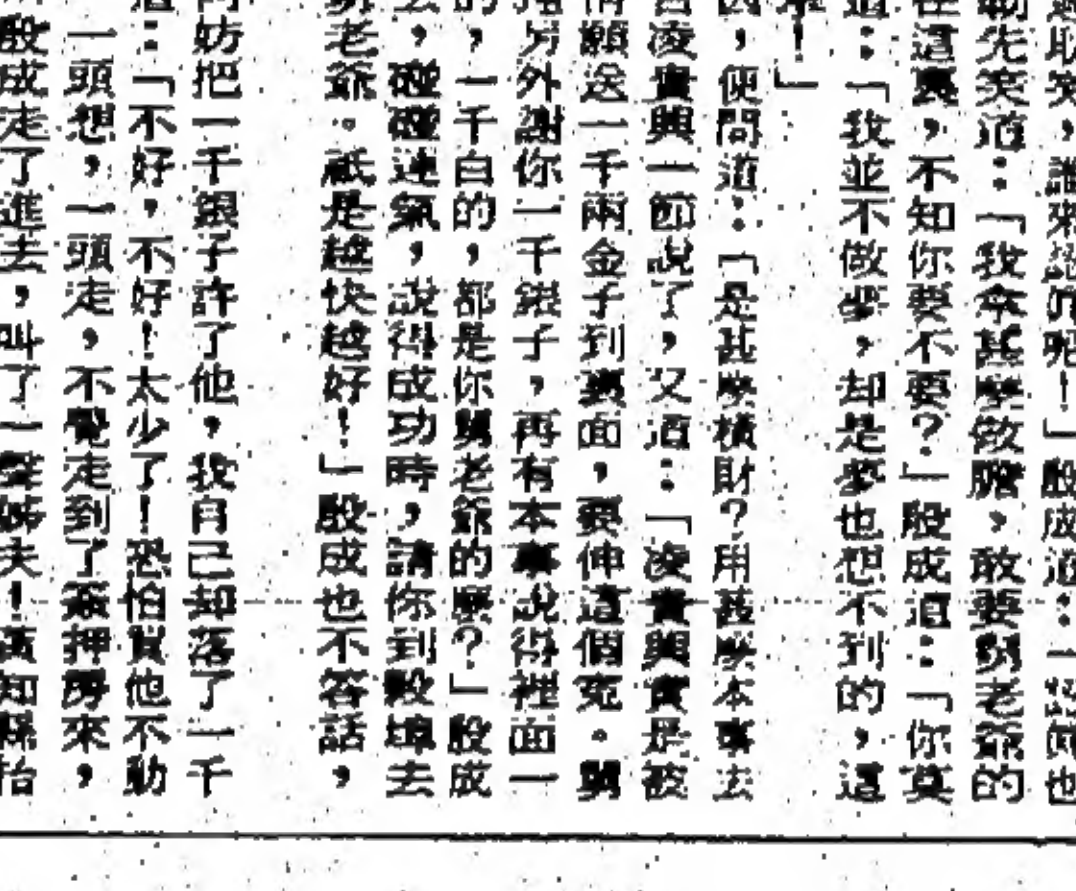 過取笑，誰來認真呢！」殷成道：「認眞也
勒先笑道：「我拿甚麼做膽，敢要舅老爺的
在這裏，不知你要不要？」殷成道：「你莫
道：「我並不做夢，却是夢也想不到的，這
來！」
因，便問道：「是甚麼橫財？用甚麼本事去
凌貴興一節說了，又道：「凌貴興實是被
情願送一千兩金子到裏面，要伸這個冤。舅
另外謝你一千銀子，再有本事說得裡面一
的，一千白的，都是你舅老爺的麼？」殷成
去，碰碰連氣，說得成功時，請你到殺埠去
舅老爺。祇是越快越好！」殷成也不答話，
何妨把一千銀子許了他，我自己却落了一千
道：「不好，不好！太少了！恐怕買他不動
一頭想，一頭走，不覺走到了簽押房來，
殷成走了進去，叫了一聲姊夫！黃知縣抬